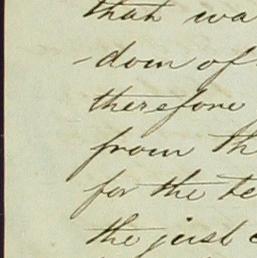 that wa
-dom of
therefore
from th
for the te
the just